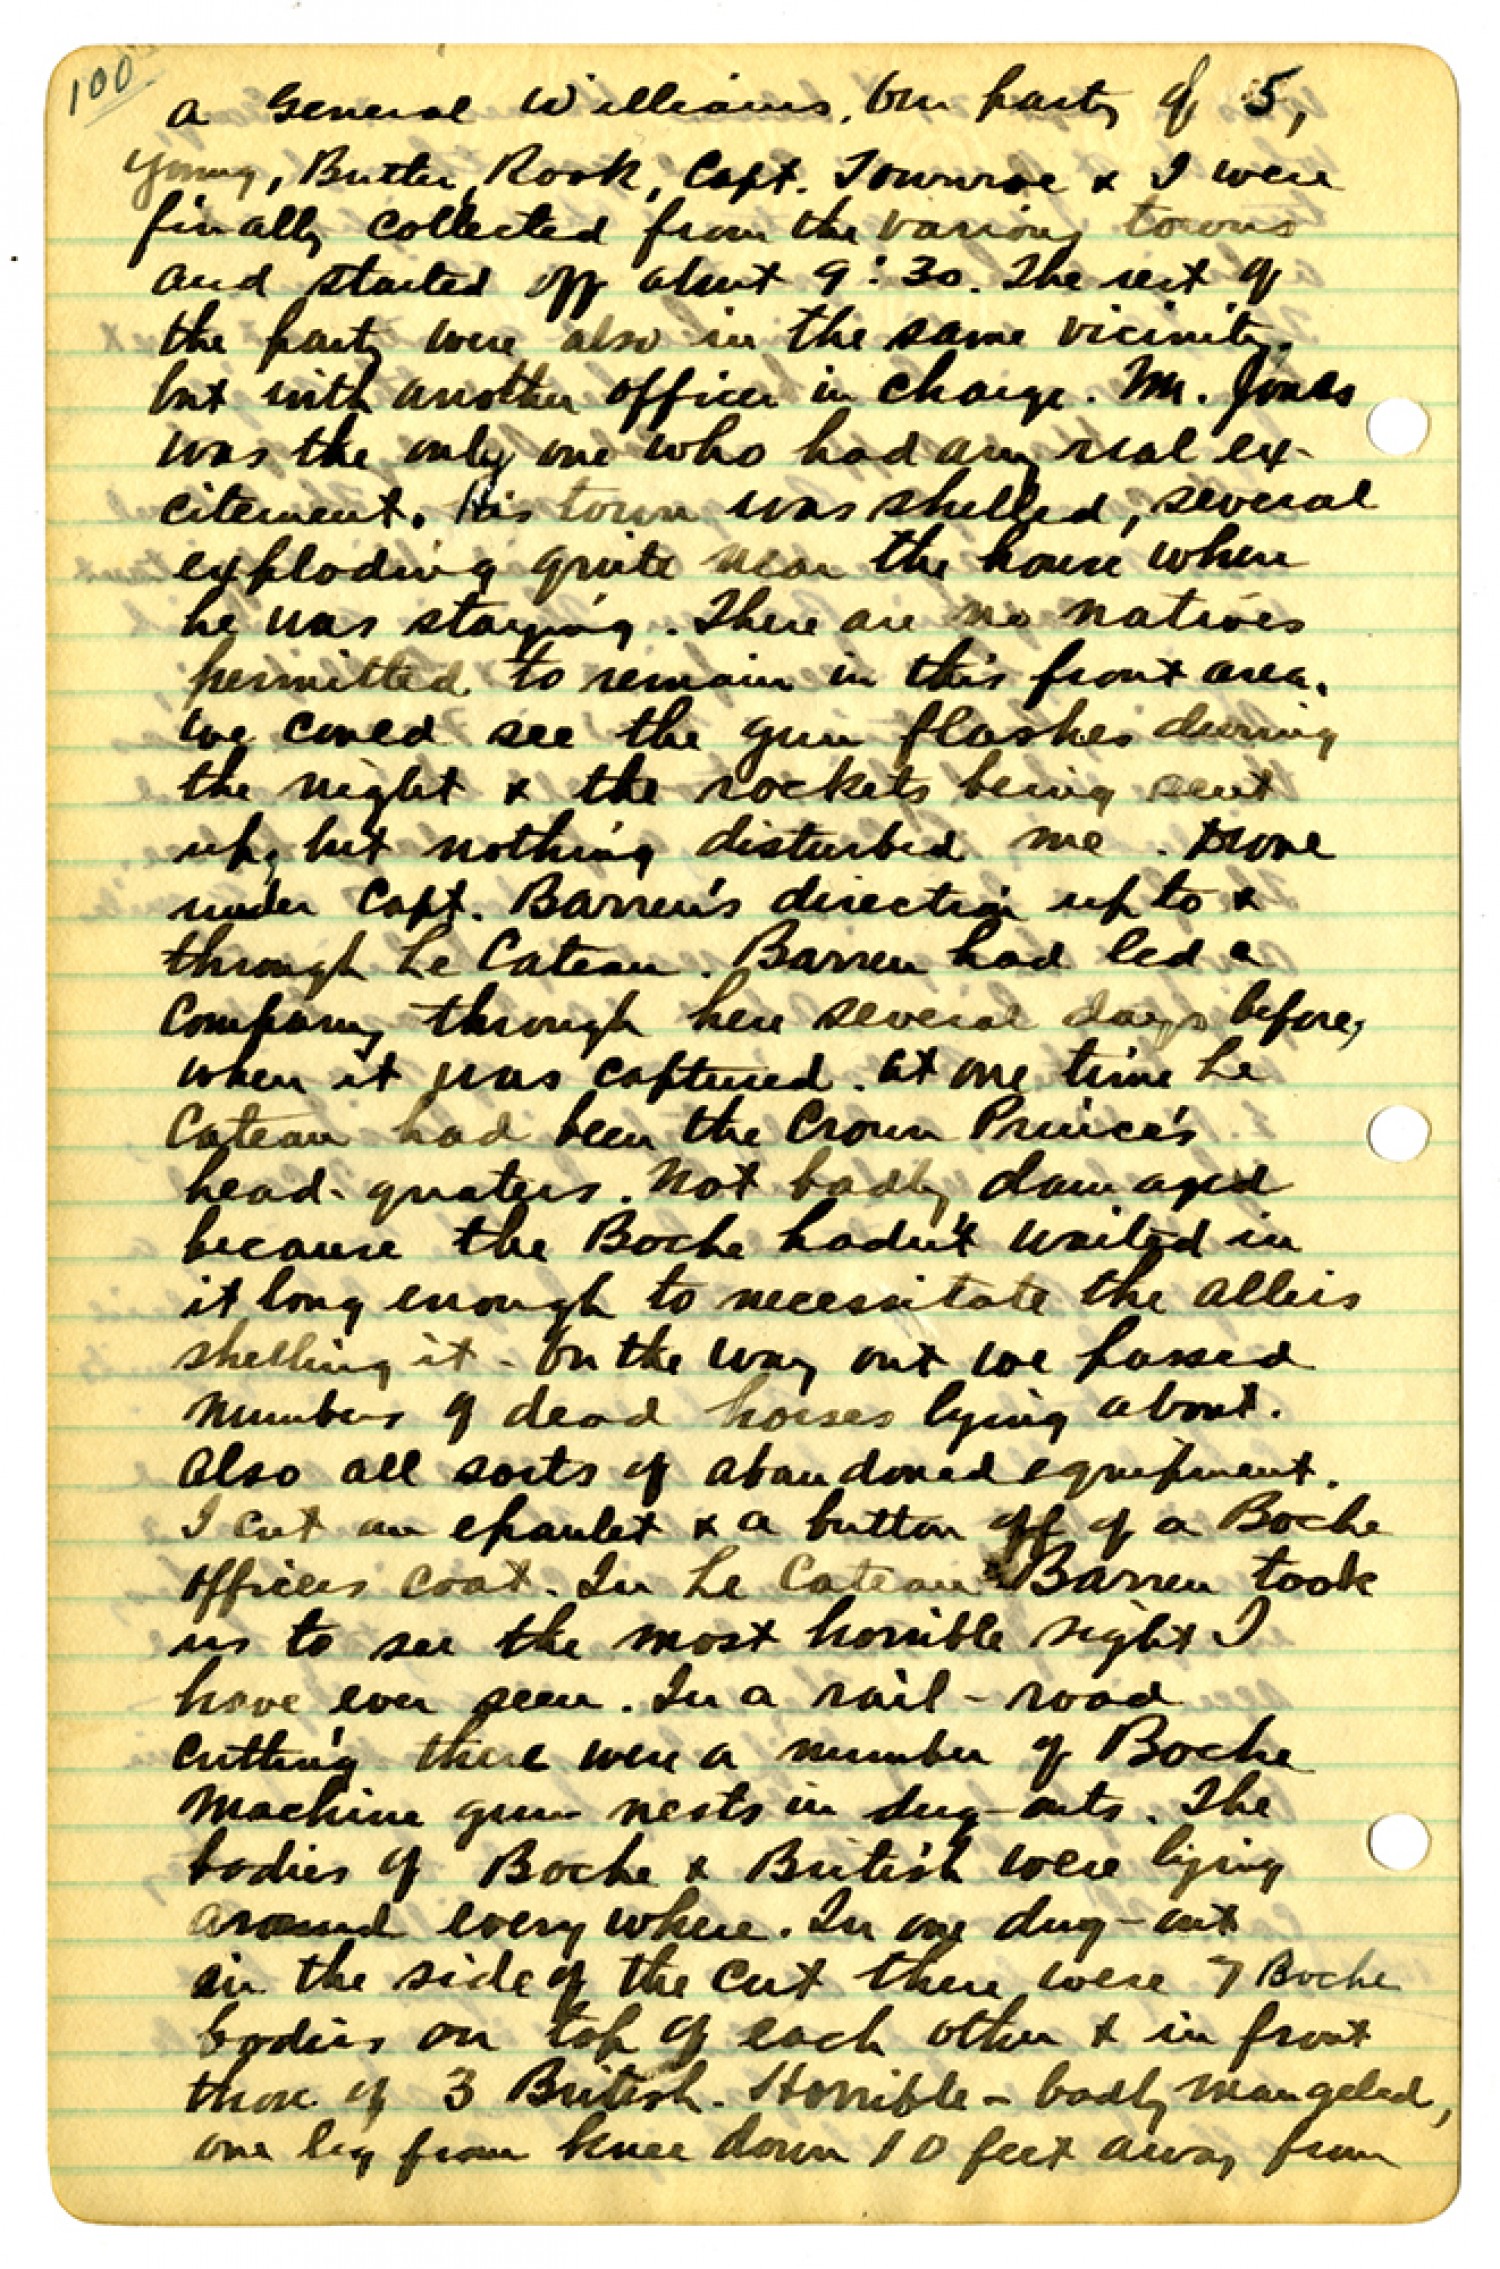 100
a General Williams. Our party of 5,
Young, Butler, Rook, Capt. Townroe & I were
finally collected from the various towns
and started off about 9:30. The rest of
the party were also in the same vicinity,
but with another officer in charge. Mr. Jones
was the only one who had any real ex-
citement. His town was shelled, several
exploding quite near the house where
he was staying. There are no natives
permitted to remain in this front area.
We could see the gun flashes during
the night & the rockets being sent
up, but nothing disturbed me. Drove
under Capt. Barren's direction up to &
through Le Cateau. Barren had led a
Company through here several days before,
when it was captured. At one time Le
Cateau had been the Crown Prince's
head-quaters. Not badly damaged
because the Boche hadn't waited in
it long enough to necessitate the Alleis
shelling it - On the way out we passed
numbers of dead horses lying about.
Also all sorts of abandoned equipment.
I cut an epaulet & a button off of a Boche
officers coat. In Le Cateau Barren took
us to see the most horrible sight I
have ever seen. In a rail-road
cutting there were a number of Boche
machine gun nests in dug-outs. The
bodies of Boche & British were lying
around every where. In one dug-out
in the side of the cut there were 7 Boche
bodies on top of each other & in front
those of 3 British. Horrible - badly mangeled,
one leg from knee down 10 feet away from